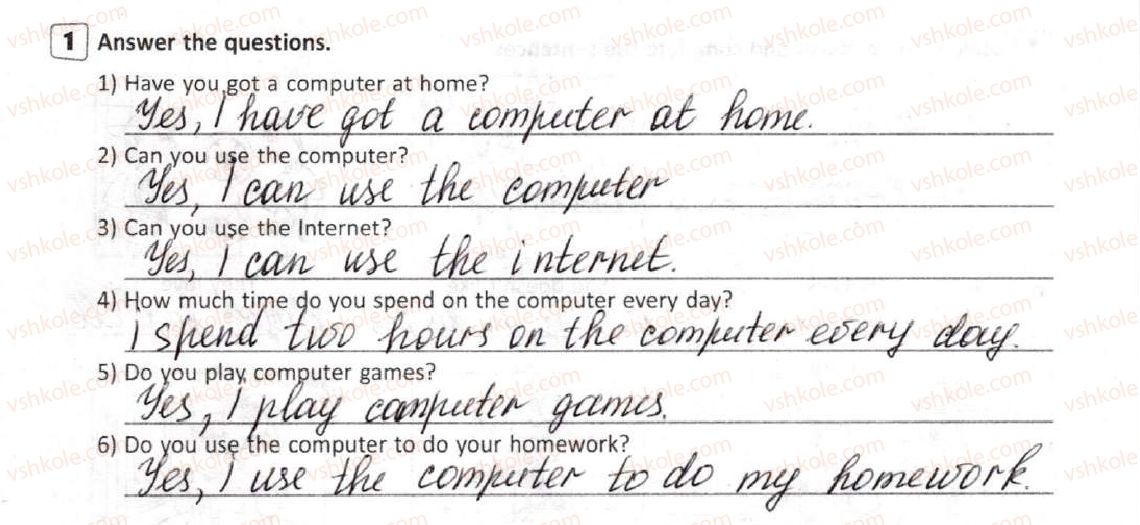 1 Answer the questions.
1) Have you got a computer at home?
Yes, I have got a computer at home.
2) Can you use the computer?
Yes, I can use the computer
3) Can you use the Internet?
Yes, I can use the internet.
4) How much time do you spend on the computer every day?
I spend two hours on the computer every day.
5) Do you play computer games?
Yes, I play computer games.
6) Do you use the computer to do your homework?
Yes, I use the computer to do my homework.
vshkole.com